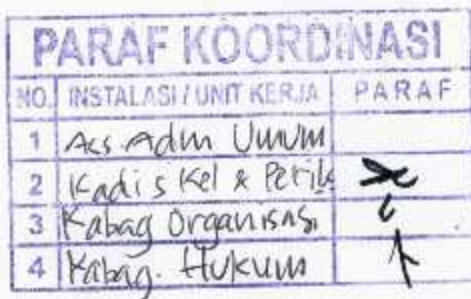 PARAF KOORDINASI
NO. INSTALASI / UNIT KERJA PARAF
1 Ass Adm Umum
2 Kadis Kel & Perik
3 Kabag Organisasi
4 Kabag. Hukum